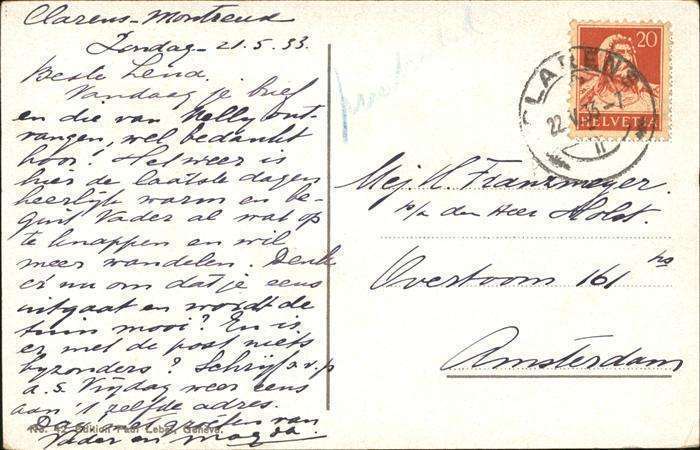 Clarens-Montreux
Zondag - 21.5.33.
Beste Lena.
Vandaag je brief
en die van Nelly ont-
vangen, wel bedankt
hoor! Het weer is
hier de laatste dagen
heerlijk warm en be-
gint Vader al wat op
te knappen en wil
meer wandelen. Denk
er nu om dat je eens
uitgaat en wordt de
tuin mooi? En is
er met de post niets
byzonders? Schrijf s.v.p
a.s. Vrijdag weer eens
aan 't zelfde adres.
Dag met groeten van
Vader en Magda.
No. Edition Paul Leba, Geneve.
20
HELVETIA
CLARENS
22.V.33-7
II
Mej. H. Frankmeyer.
p/a den Heer Holst.
Overtoom 161 hs
Amsterdam